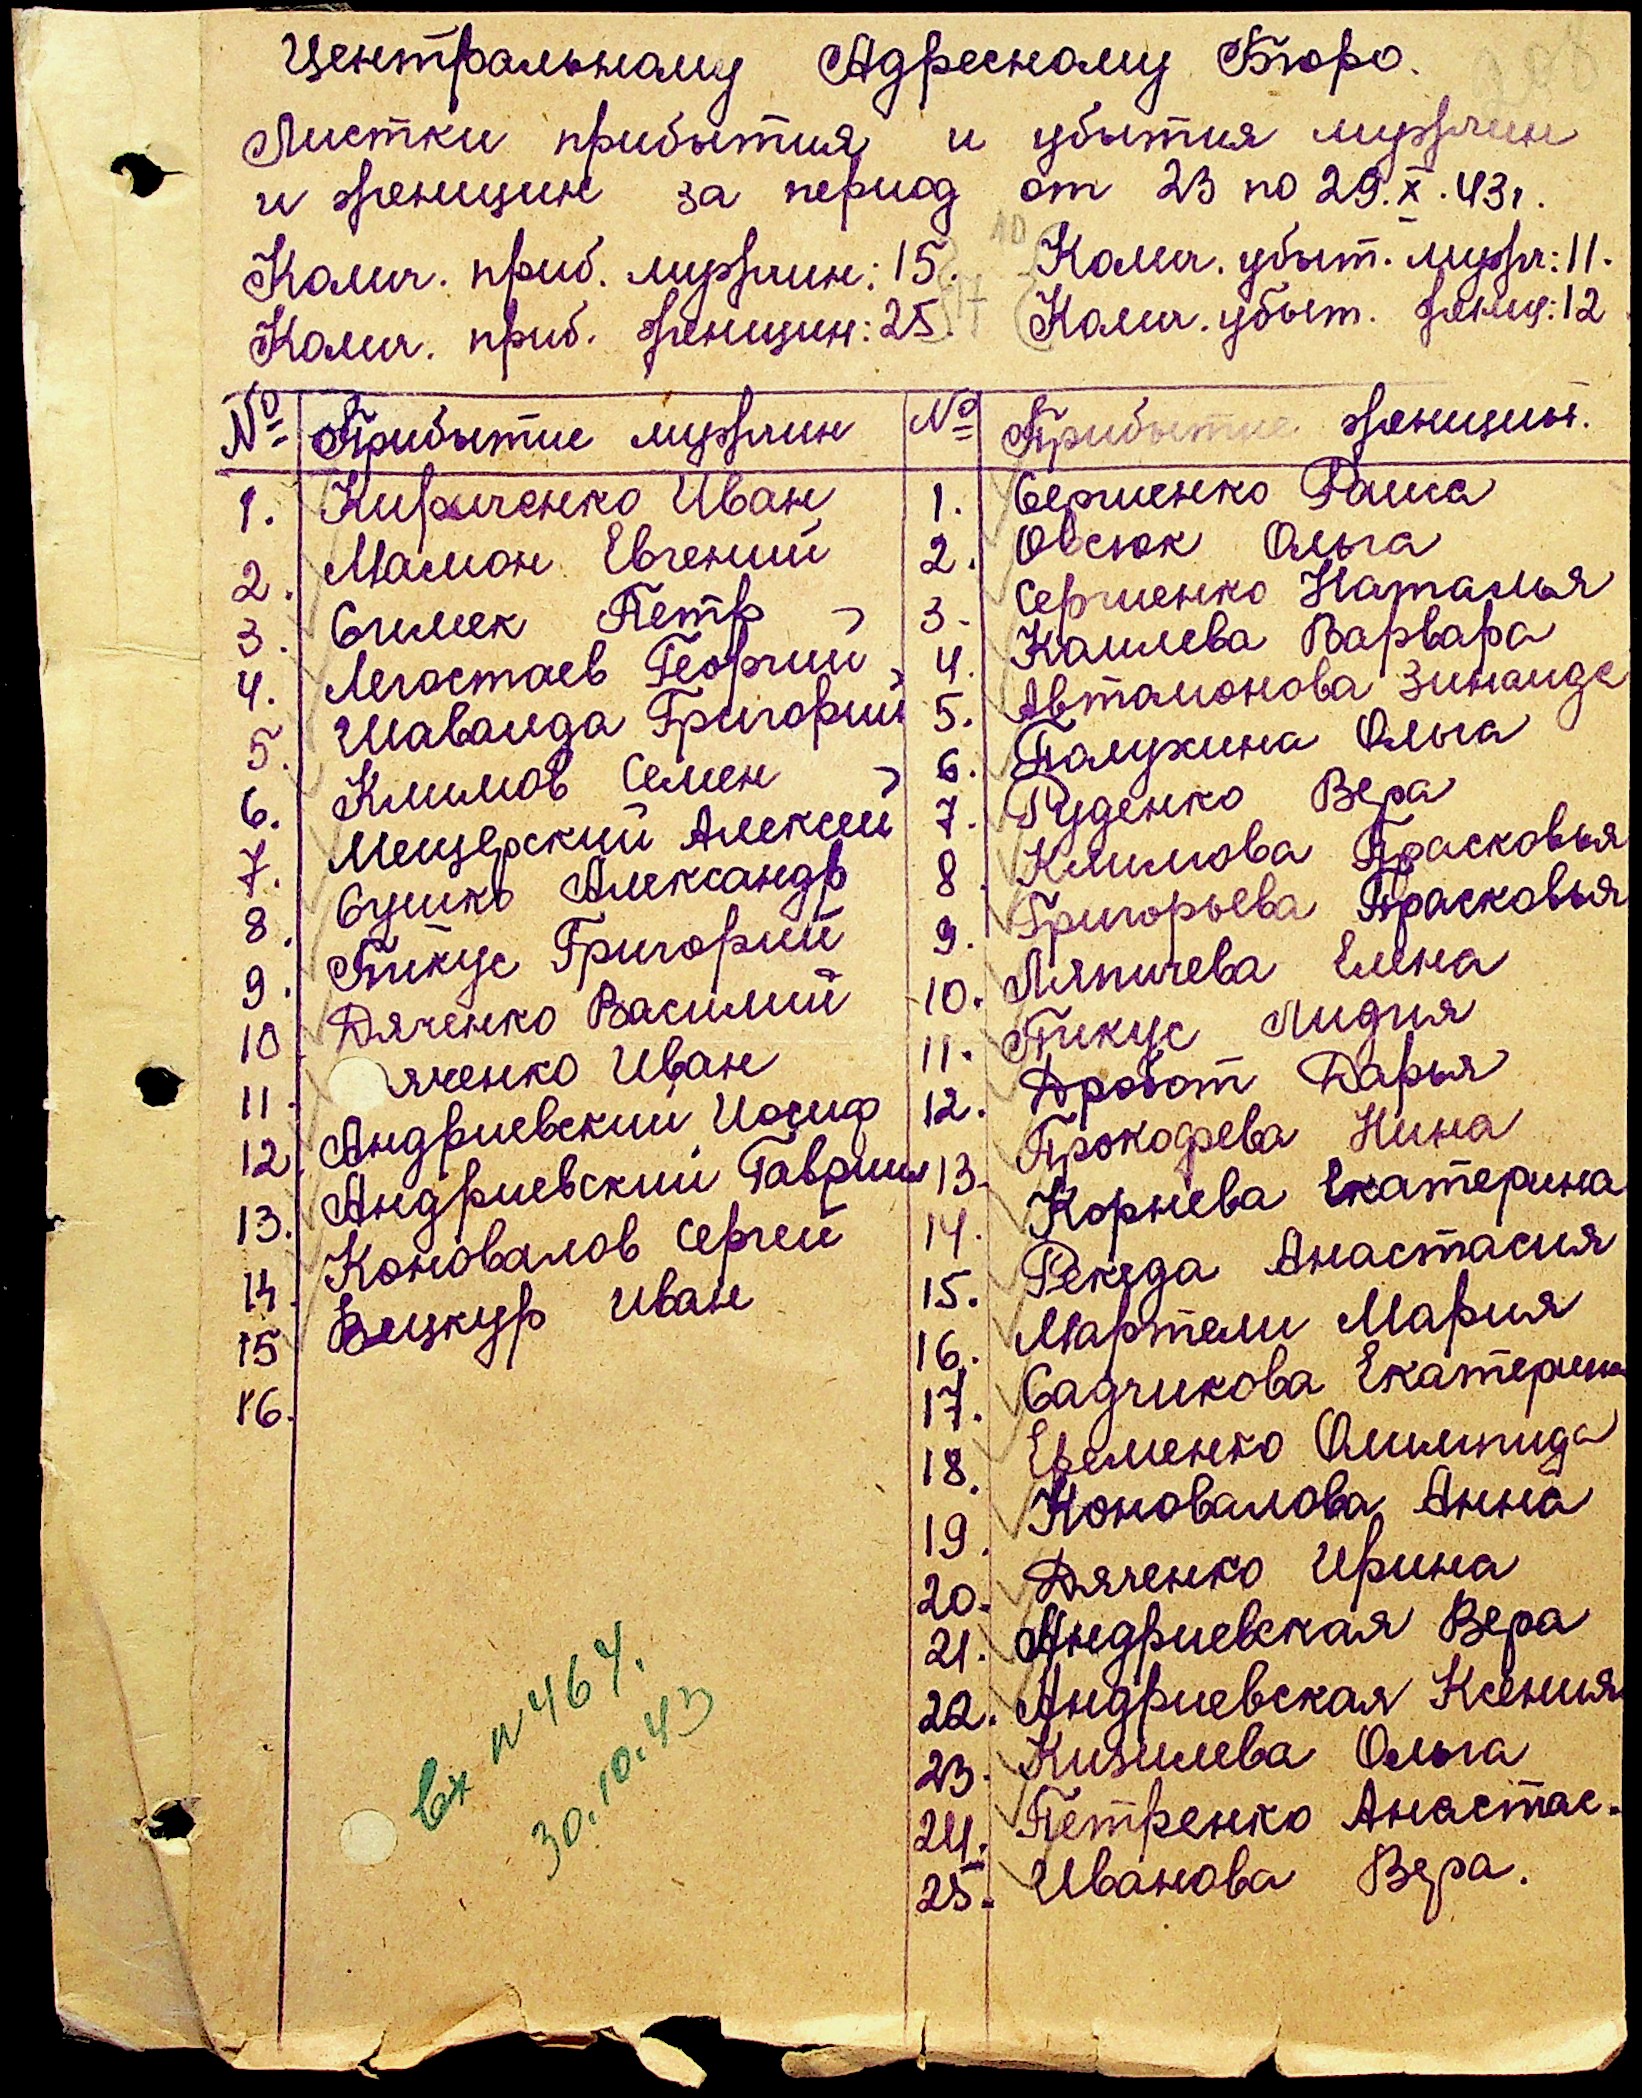 Центральному Адресному Бюро.
Листки прибытия и убытия мужчин
и женщин за период от 23 по 29.X.43г.
Колич. приб. мужчин: 15. Колич. убыт. мужч: 11.
Колич. приб. женщин: 25. 17 Колич. убыт. женщ: 12
№ Прибытие мужчин № Прибытие женщин.
1. Кириченко Иван 1. Сергиенко Раиса
2. Мамон Евгений 2. Овсюк Ольга
3. Симек Петр 3. Сергиенко Наталья
4. Легостаев Георгий 4. Камлева Варвара
5. Шаваида Григорий 5. Автомонова Зинаида
6. Климов Семен 6. Полухина Ольга
7. Мещерский Алексей 7. Руденко Вера
8. Сушко Александр 8. Климова Прасковья
9. Пикус Григорий 9. Григорьева Прасковья
10 Дяченко Василий 10. Ляпичева Елена
11. яченко Иван 11. Пикус Лидия
12. Андриевский Иосиф 12. Дробот Дарья
13. Андриевский Гавриил 13. Прокофева Нина
14. Коновалов Сергей 14. Корнева Екатерина
15 Вецкур Иван 15. Рекеда Анастасия
16. 16. Мартели Мария
17. Садчикова Екатерина
18. Евсменко Олимпида
19. Коновалова Анна
20. Дяченко Ирина
21. Андриевская Вера
22. Андриевская Ксения
23. Кизилева Ольга
24. Петренко Анастас.
25. Иванова Вера.
вх N 464.
30.10.43